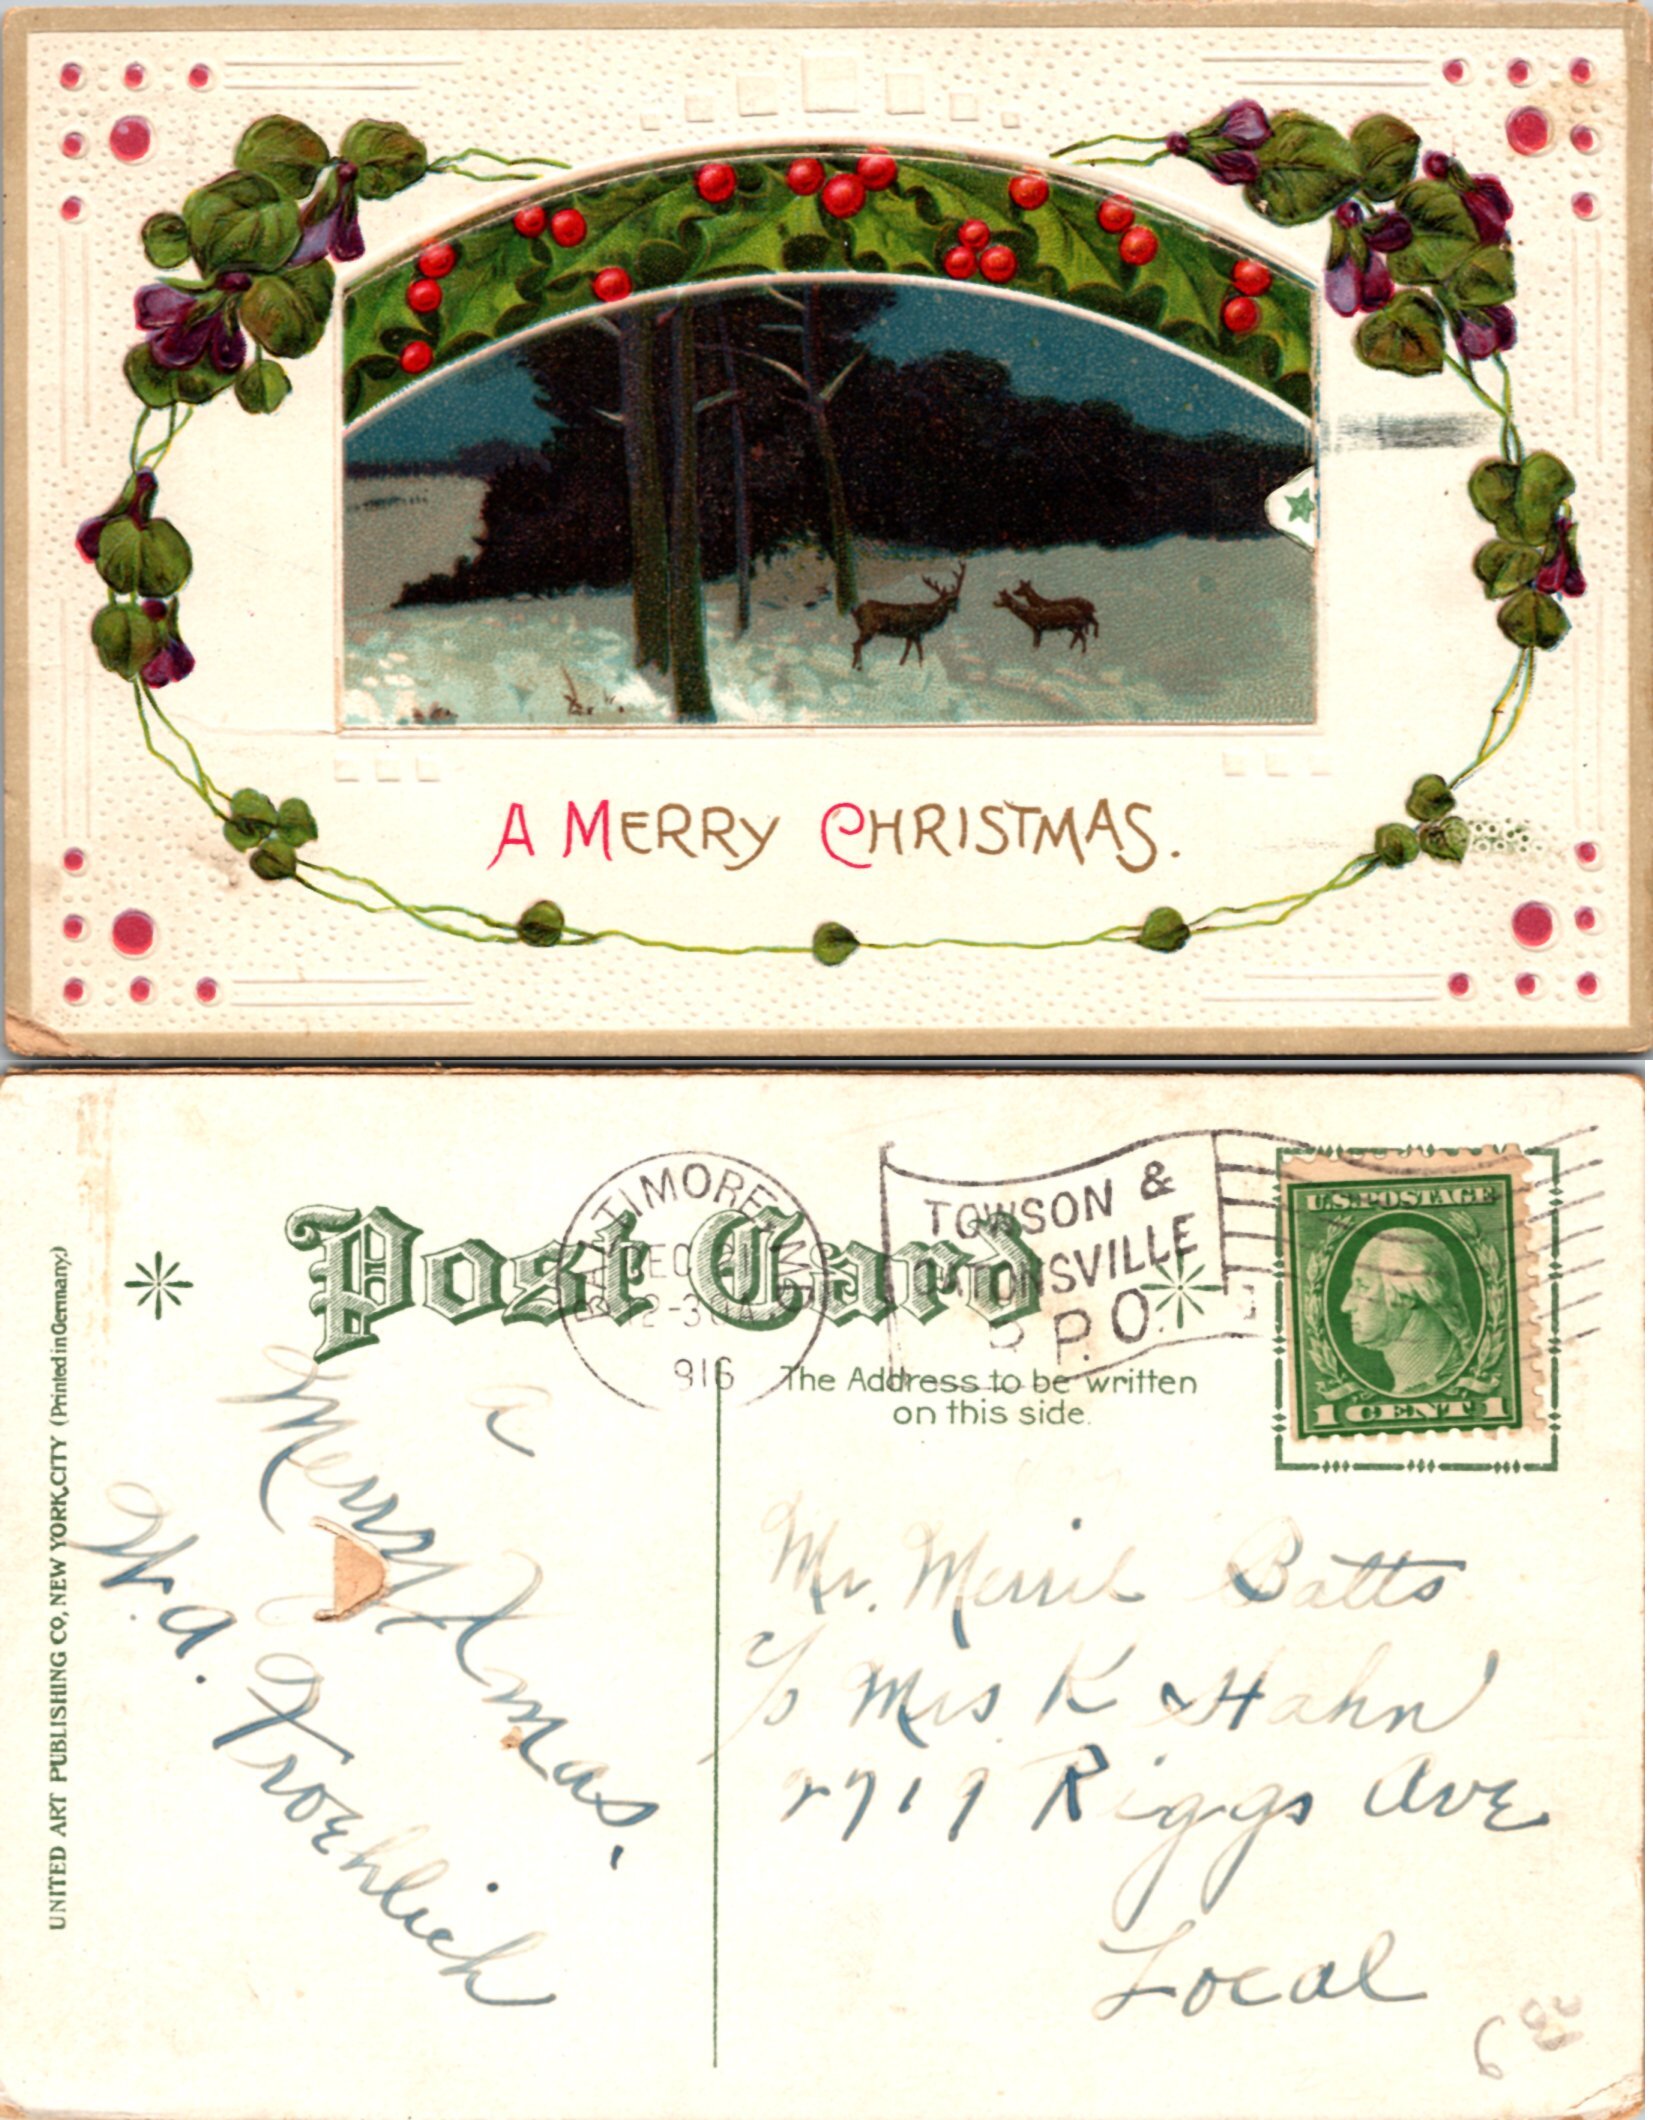 A MERRY CHRISTMAS.
UNITED ART PUBLISHING CO, NEW YORK CITY (Printed in Germany.)
Post Card
BALTIMORE, MD
DEC
12-30A
1916
TOWSON &
CATONSVILLE
P.O.
U.S. POSTAGE
1 CENT 1
The Address to be written
on this side.
a
Merry Xmas.
W. A. Froehlich
Mr. Merril Batts
c/o Mrs K Hahn
2719 Riggs Ave
Local